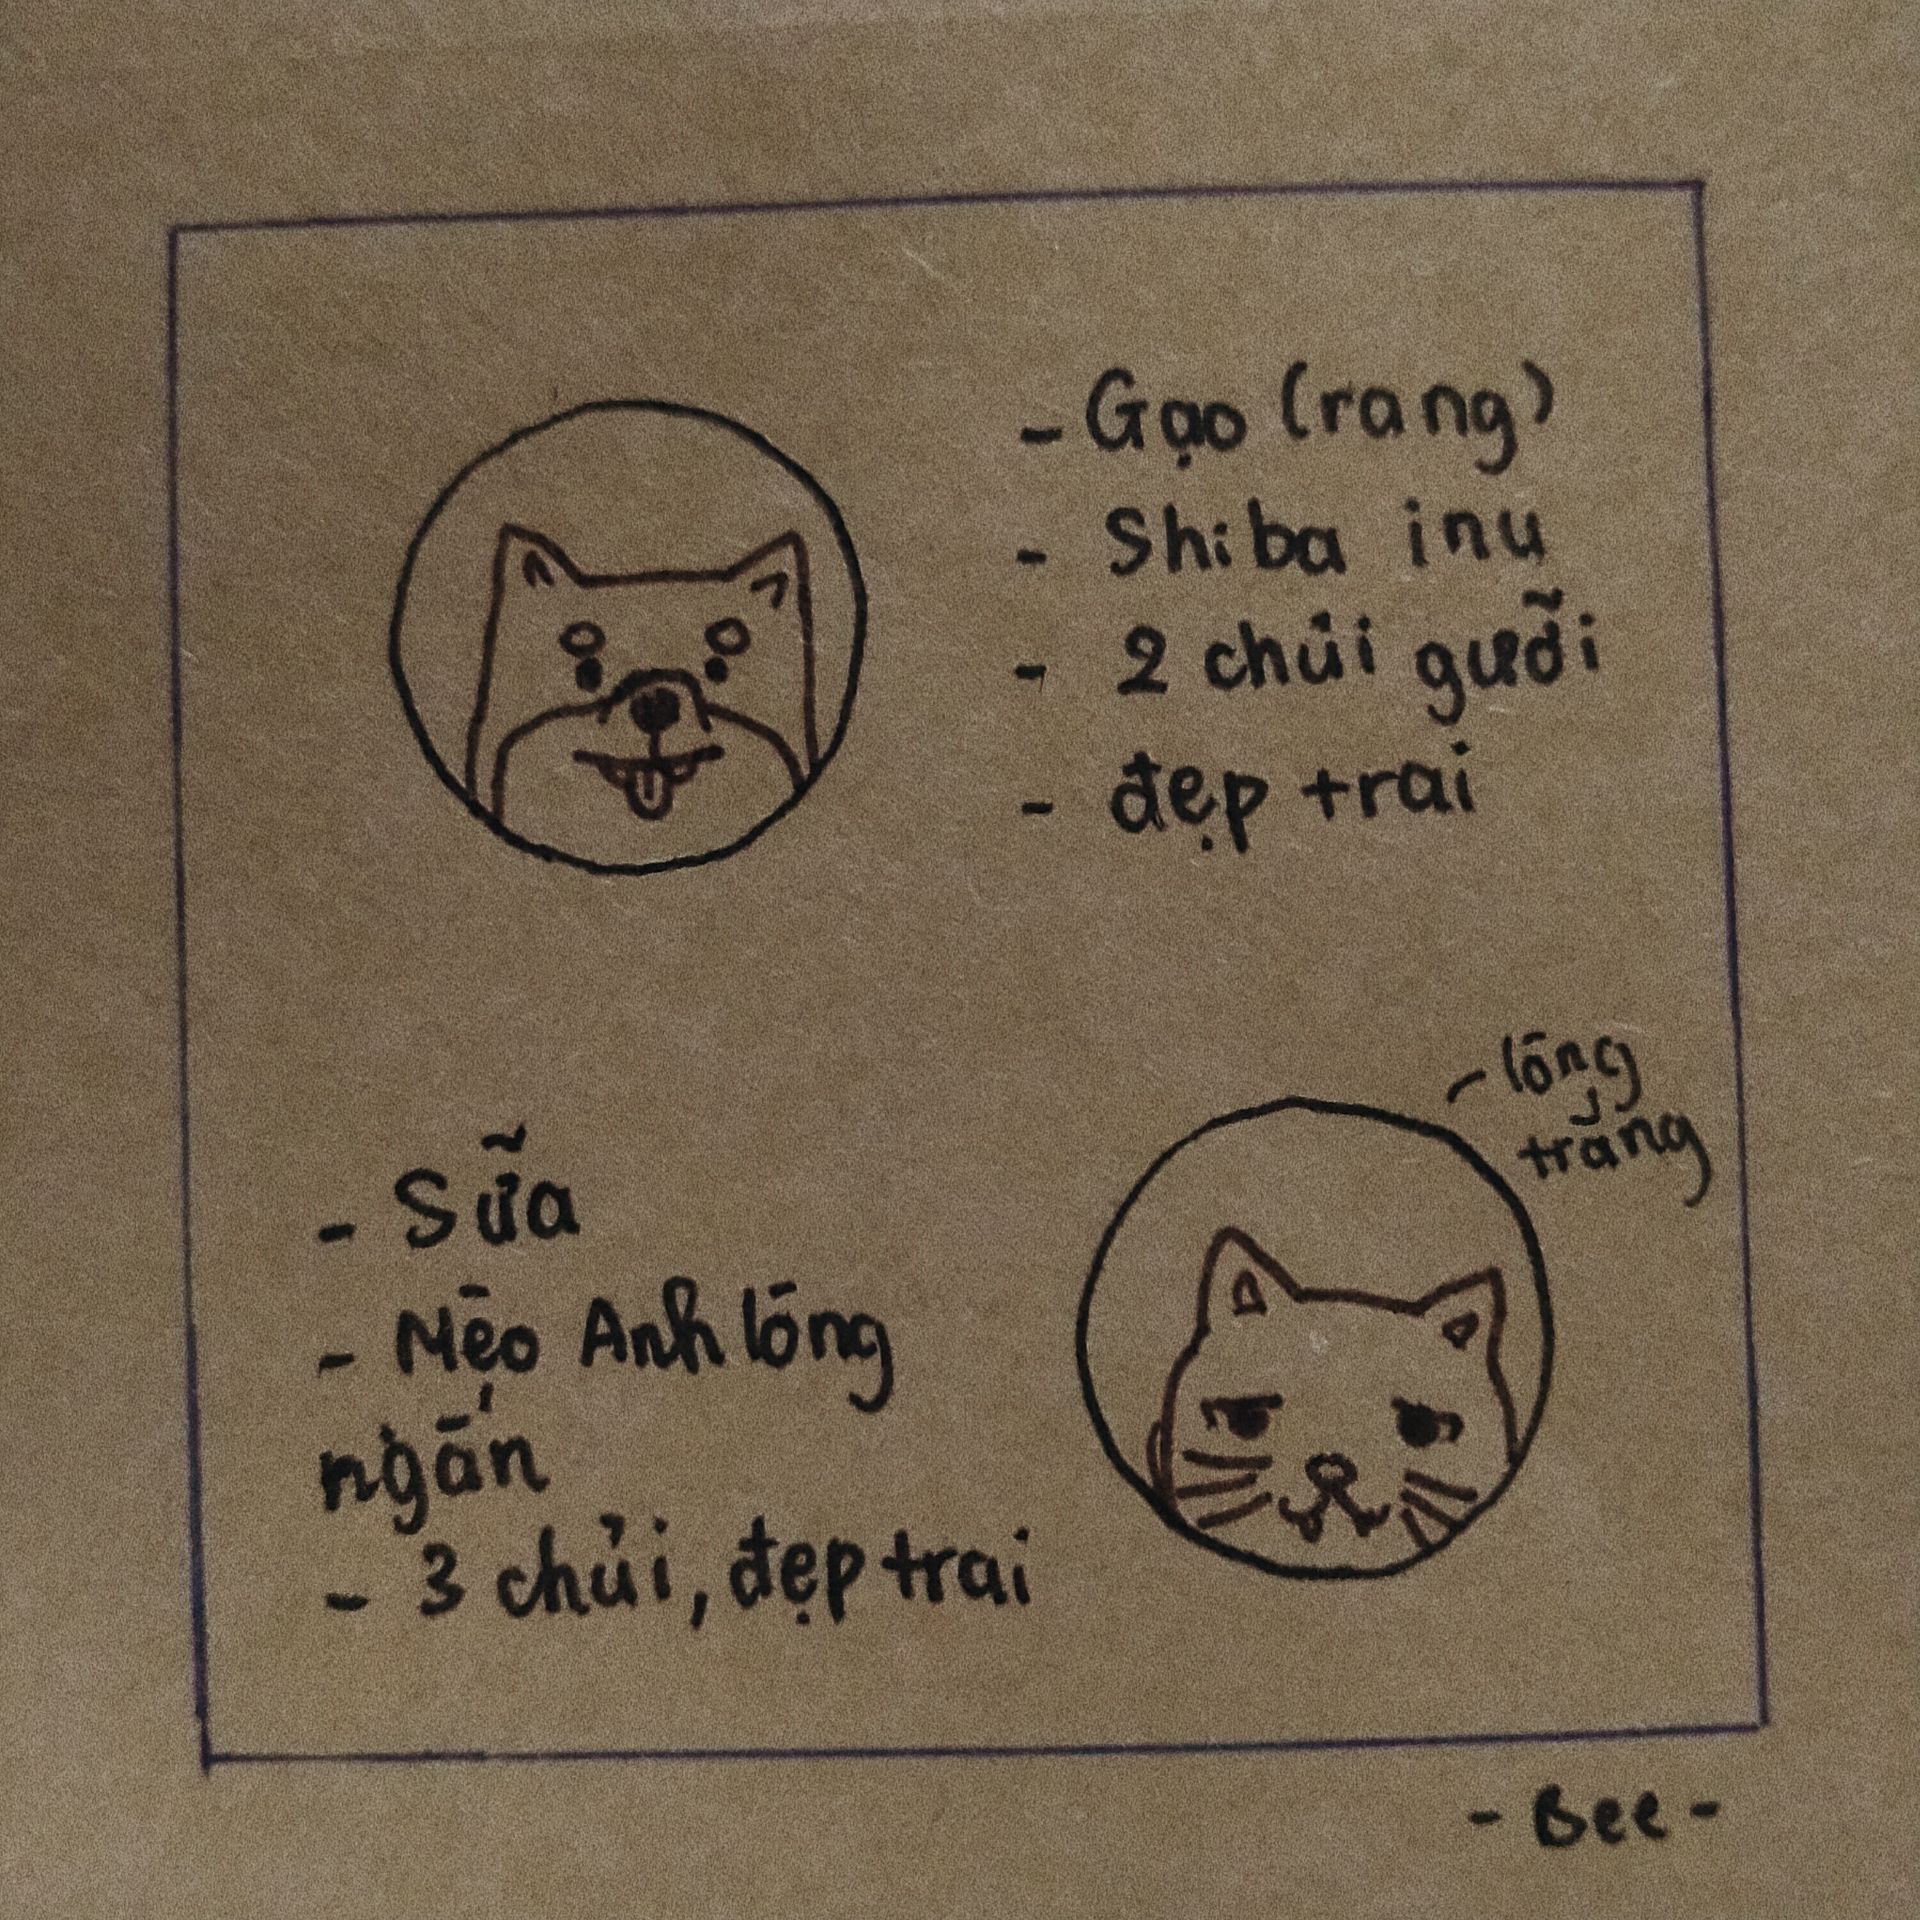 - Gạo (rang)
- Shiba inu
- 2 chủi gưỡi
- đẹp trai
- lông
trắng
- Sữa
- Mèo Anh lông
ngắn
- 3 chủi, đẹp trai
- Bee -